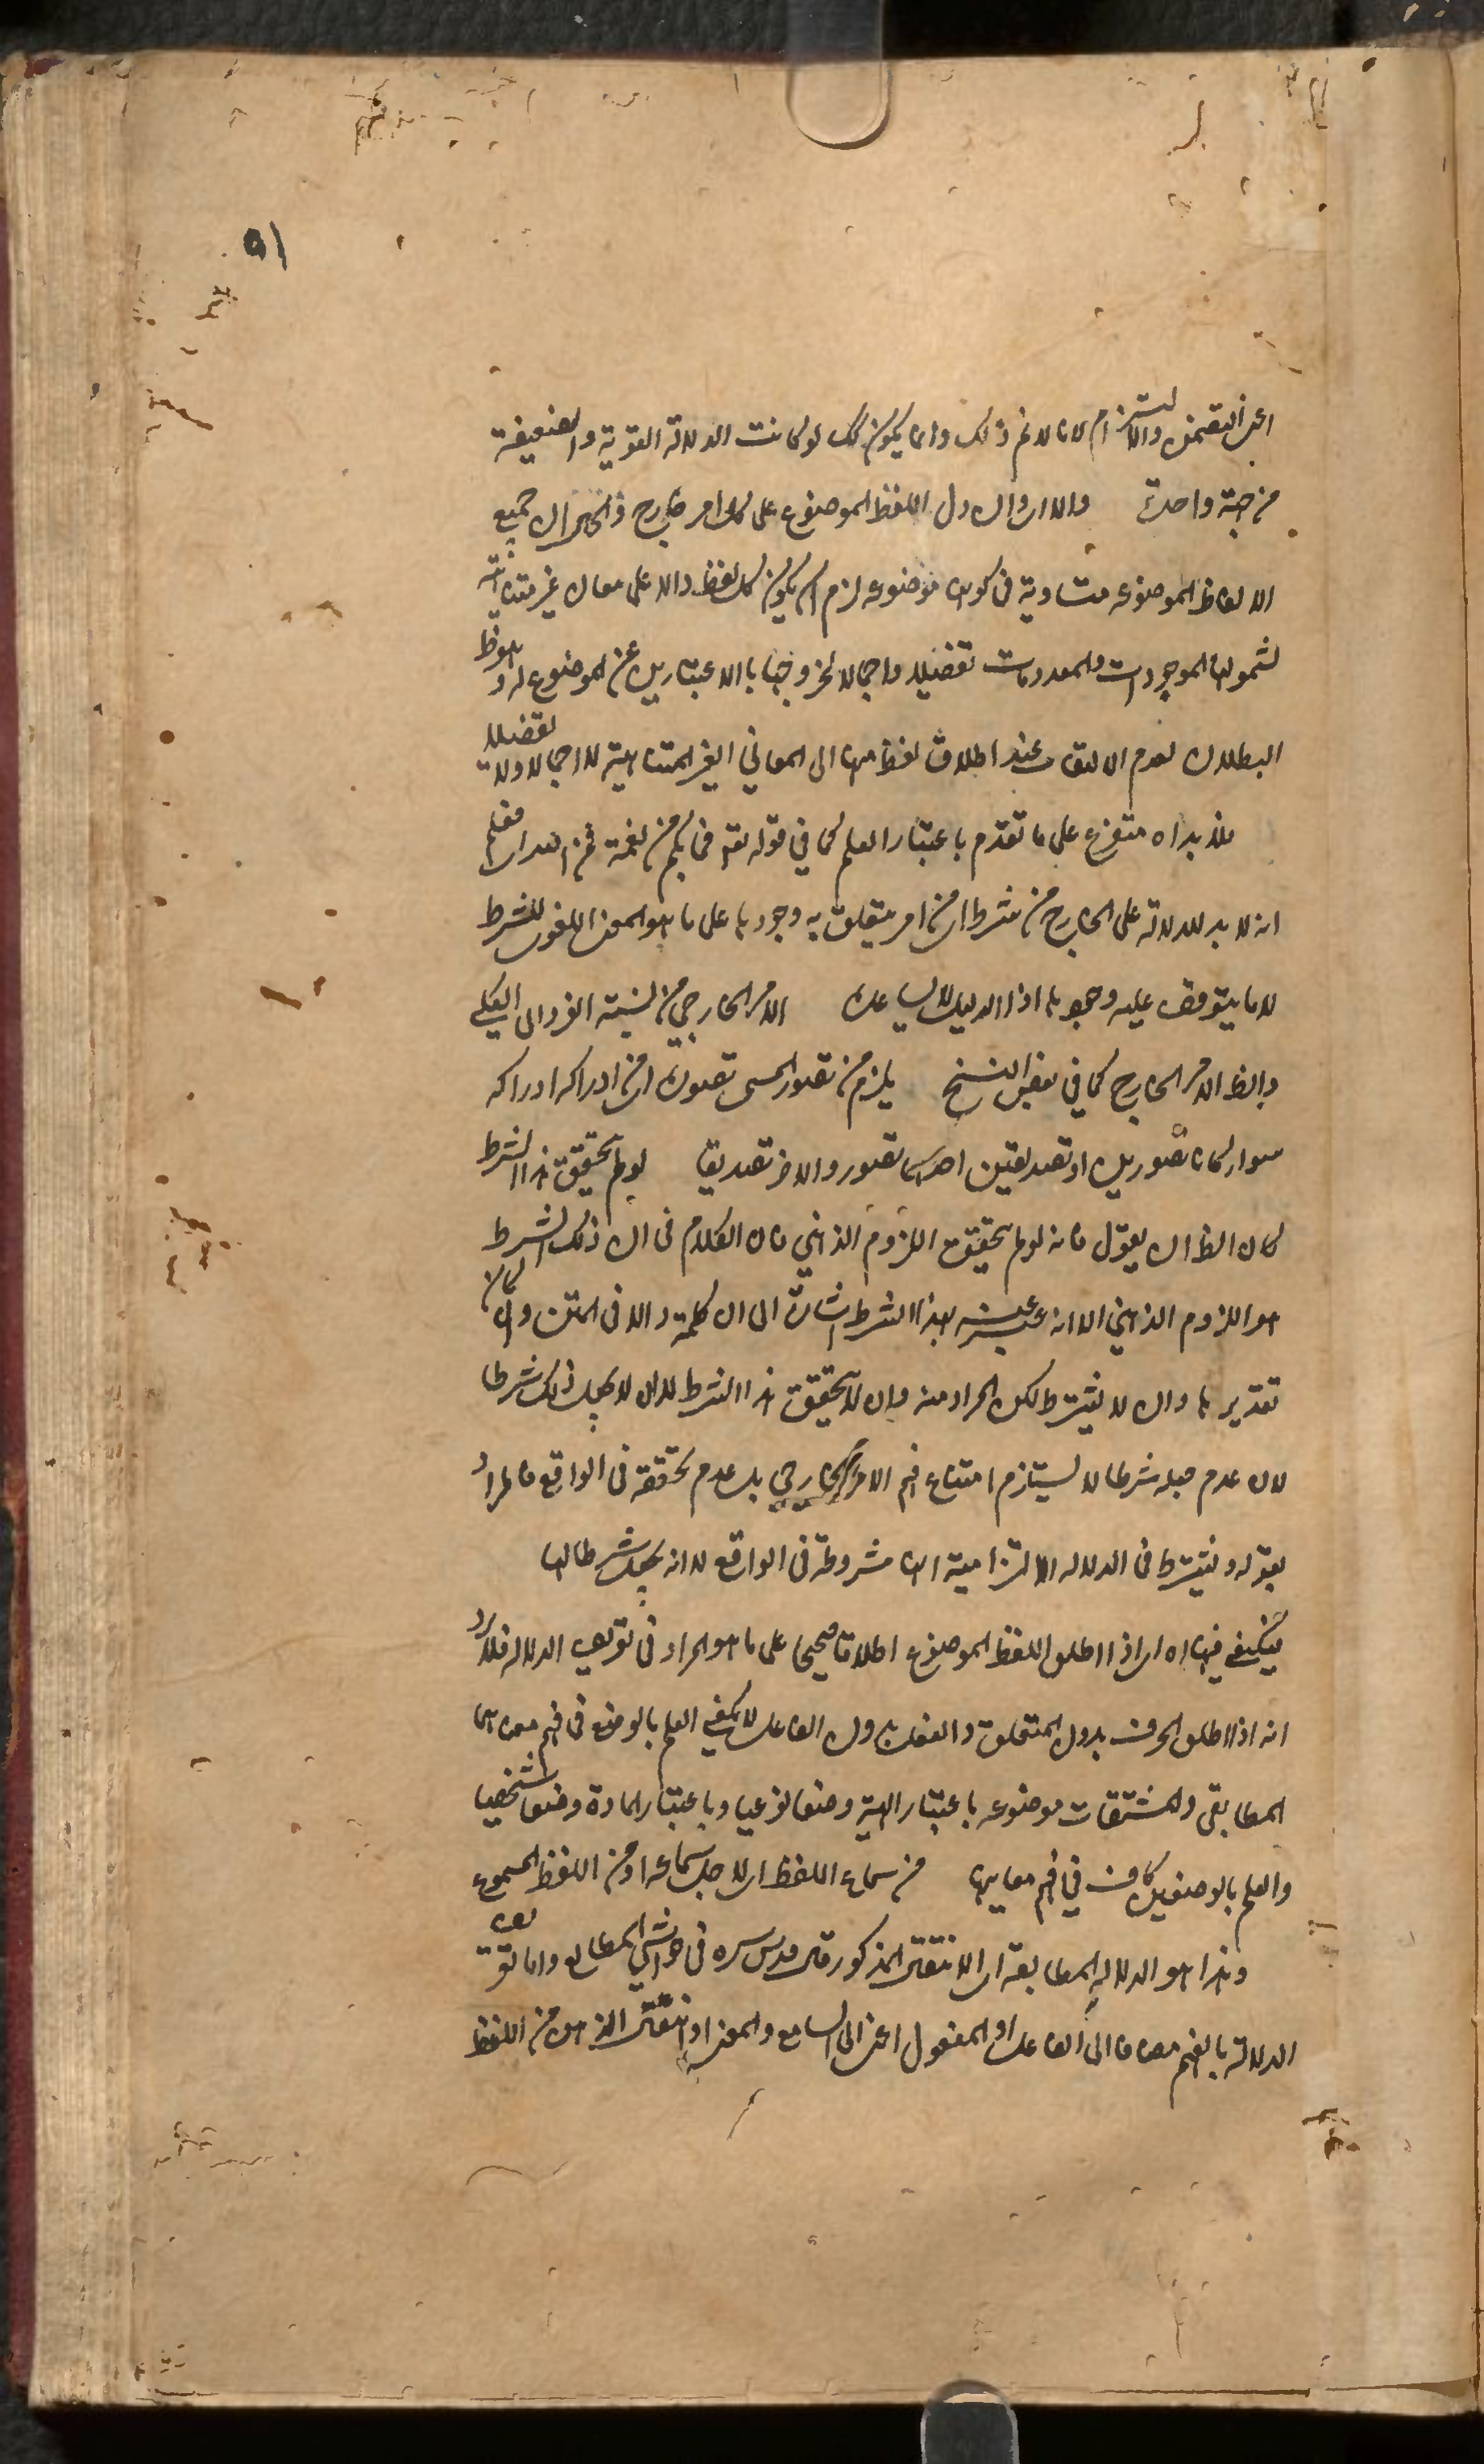 ٥١
اعني التضمن والالتزام لانا لانم ذلك وانما يكون كك لو كانت الدلالة القوية والضعيفة
من جهة واحدة والا اي وان دل اللفظ الموضوع على كل امر خارج ذا الخ ان جميع
الالفاظ الموضوعه متساوية في كونها موضوعه لزم ان يكون كل لفظ دالا على معان غير متناهية
لشمولها الموجودات والمعدومات تفضيلا واجمالا لخروجها بالاعتبارين عن الموضوع له وهو ظ
البطلان لعدم الالتفات عند اطلاق لفظ منها الى المعاني الغير المتناهية لا اجمالا ولا تفضيلا
فلا بد اه متفرع على ما تقدم باعتبار العلم كما في قوله تع فما بكم من نعمة فمن الله اي فعلم
انه لا بد للدلالة على الخارج من شرط اي من امر يتعلق به وجودها على ما هو المعنى اللغوي للشرط
لا ما يتوقف عليه وجودها اذ الدليل لا يساعده الامر الخارجي من نسبة الفرد الى الكلي
والظ الامر الخارج كما في بعض النسخ يلزم من تصور المسمى تصوره اي من ادراكه ادراكه
سواء كانا تصورين او تصديقين احدهما تصور والاخر تصديقا لو لم يتحقق هذا الشرط
كان الظ ان يقول فانه لو لم يتحقق اللزوم الذهني فان الكلام في ان ذلك الشرط
هو اللزوم الذهني الا انه عبر عنه بهذا الشرط اشارة الى ان كلمة والا في المتن وان كان
تقديرها وان لا يشترط لكن المراد منه وان لا يتحقق هذا الشرط لا ان لا يجعل ذلك شرطا
لان عدم جعله شرطا لا يستلزم امتناع فهم الامر الخارجي بل عدم تحققه في الواقع فالمراد
بقوله ويشترط في الدلاله الالتزامية انها مشروطة في الواقع لا انه يجعل شرطا لها
فيكفي فيها اه اي اذا اطلق اللفظ الموضوع اطلاقا صحيحا على ما هو المراد في تعريف الدلاله فلا يرد
انه اذا اطلق الحرف بدون المتعلق والفعل بدون الفاعل لا يكفي العلم بالوضع في فهم معناهما
المطابقي والمشتقات موضوعه باعتبار الهيئة وضعا نوعيا وباعتبار المادة وضعا شخصيا
والعلم بالوضعين كاف في فهم معانيها من سماع اللفظ اي لاجل سماعه او من اللفظ المسموع
وهذا هو الدلاله المطابقة اي الانتقال المذكور قال قدس سره في حواشي المطالع واما تعريف
الدلالة بالفهم مضافا الى الفاعل او المفعول اعني السامع والمعنى او بانتقال الذهن من اللفظ